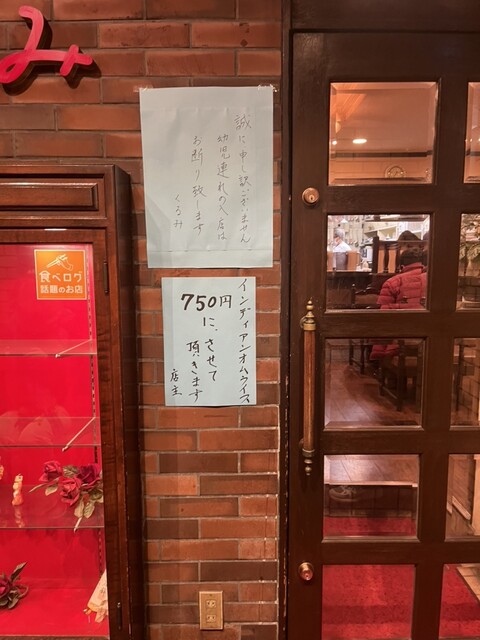 み
誠に申し訳ございません
幼児連れの入店は
お断り致します
くるみ
インディアンオムライス
750円
に、させて
頂きます
店主
食べログ
話題のお店